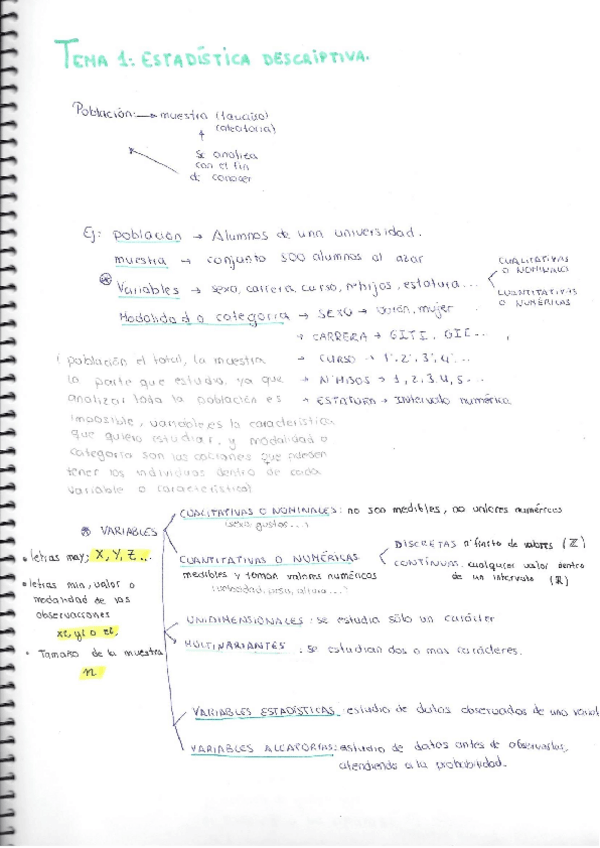 TEMA 1: ESTADÍSTICA DESCRIPTIVA.
Población: → muestra (tamaño)
(aleatoria)
se analiza
con el fin
de conocer
Ej: población → Alumnos de una universidad.
muestra → conjunto 500 alumnos al azar
Variables → sexo, carrera, curso, nº hijos, estatura...
CUALITATIVAS
O NOMINALES
CUANTITATIVAS
O NUMÉRICAS
Modalidad o categoría → SEXO → varón, mujer
→ CARRERA → GITI, GIC...,
→ CURSO → 1º, 2º, 3º, 4º...
→ Nº HIJOS → 1, 2, 3, 4, 5...
→ ESTATURA → Intervalo numérico
(población el total, la muestra
la parte que estudio, ya que
analizar toda la población es
imposible, variable es la característica
que quiero estudiar, y modalidad o
categoría son las opciones que pueden
tener los individuos dentro de cada
variable o característica)
VARIABLES
CUALITATIVAS O NOMINALES: no son medibles, no valores numéricos
(sexo, gustos...)
• letras may; X, Y, Z...
CUANTITATIVAS O NUMÉRICAS
medibles y toman valores numéricos
DISCRETAS nº finito de valores (ℤ)
CONTINUAS cualquier valor dentro
de un intervalo (ℝ)
• letras min, valor o
modalidad de las
observaciones
xi, yi o zi.
• Tamaño de la muestra
n
UNIDIMENSIONALES: se estudia sólo un carácter
MULTIVARIANTES: se estudian dos o mas carácteres.
VARIABLES ESTADÍSTICAS: estudio de datos observados de una
VARIABLES ALEATORIAS: estudio de datos antes de observarlos,
atendiendo a la probabilidad.